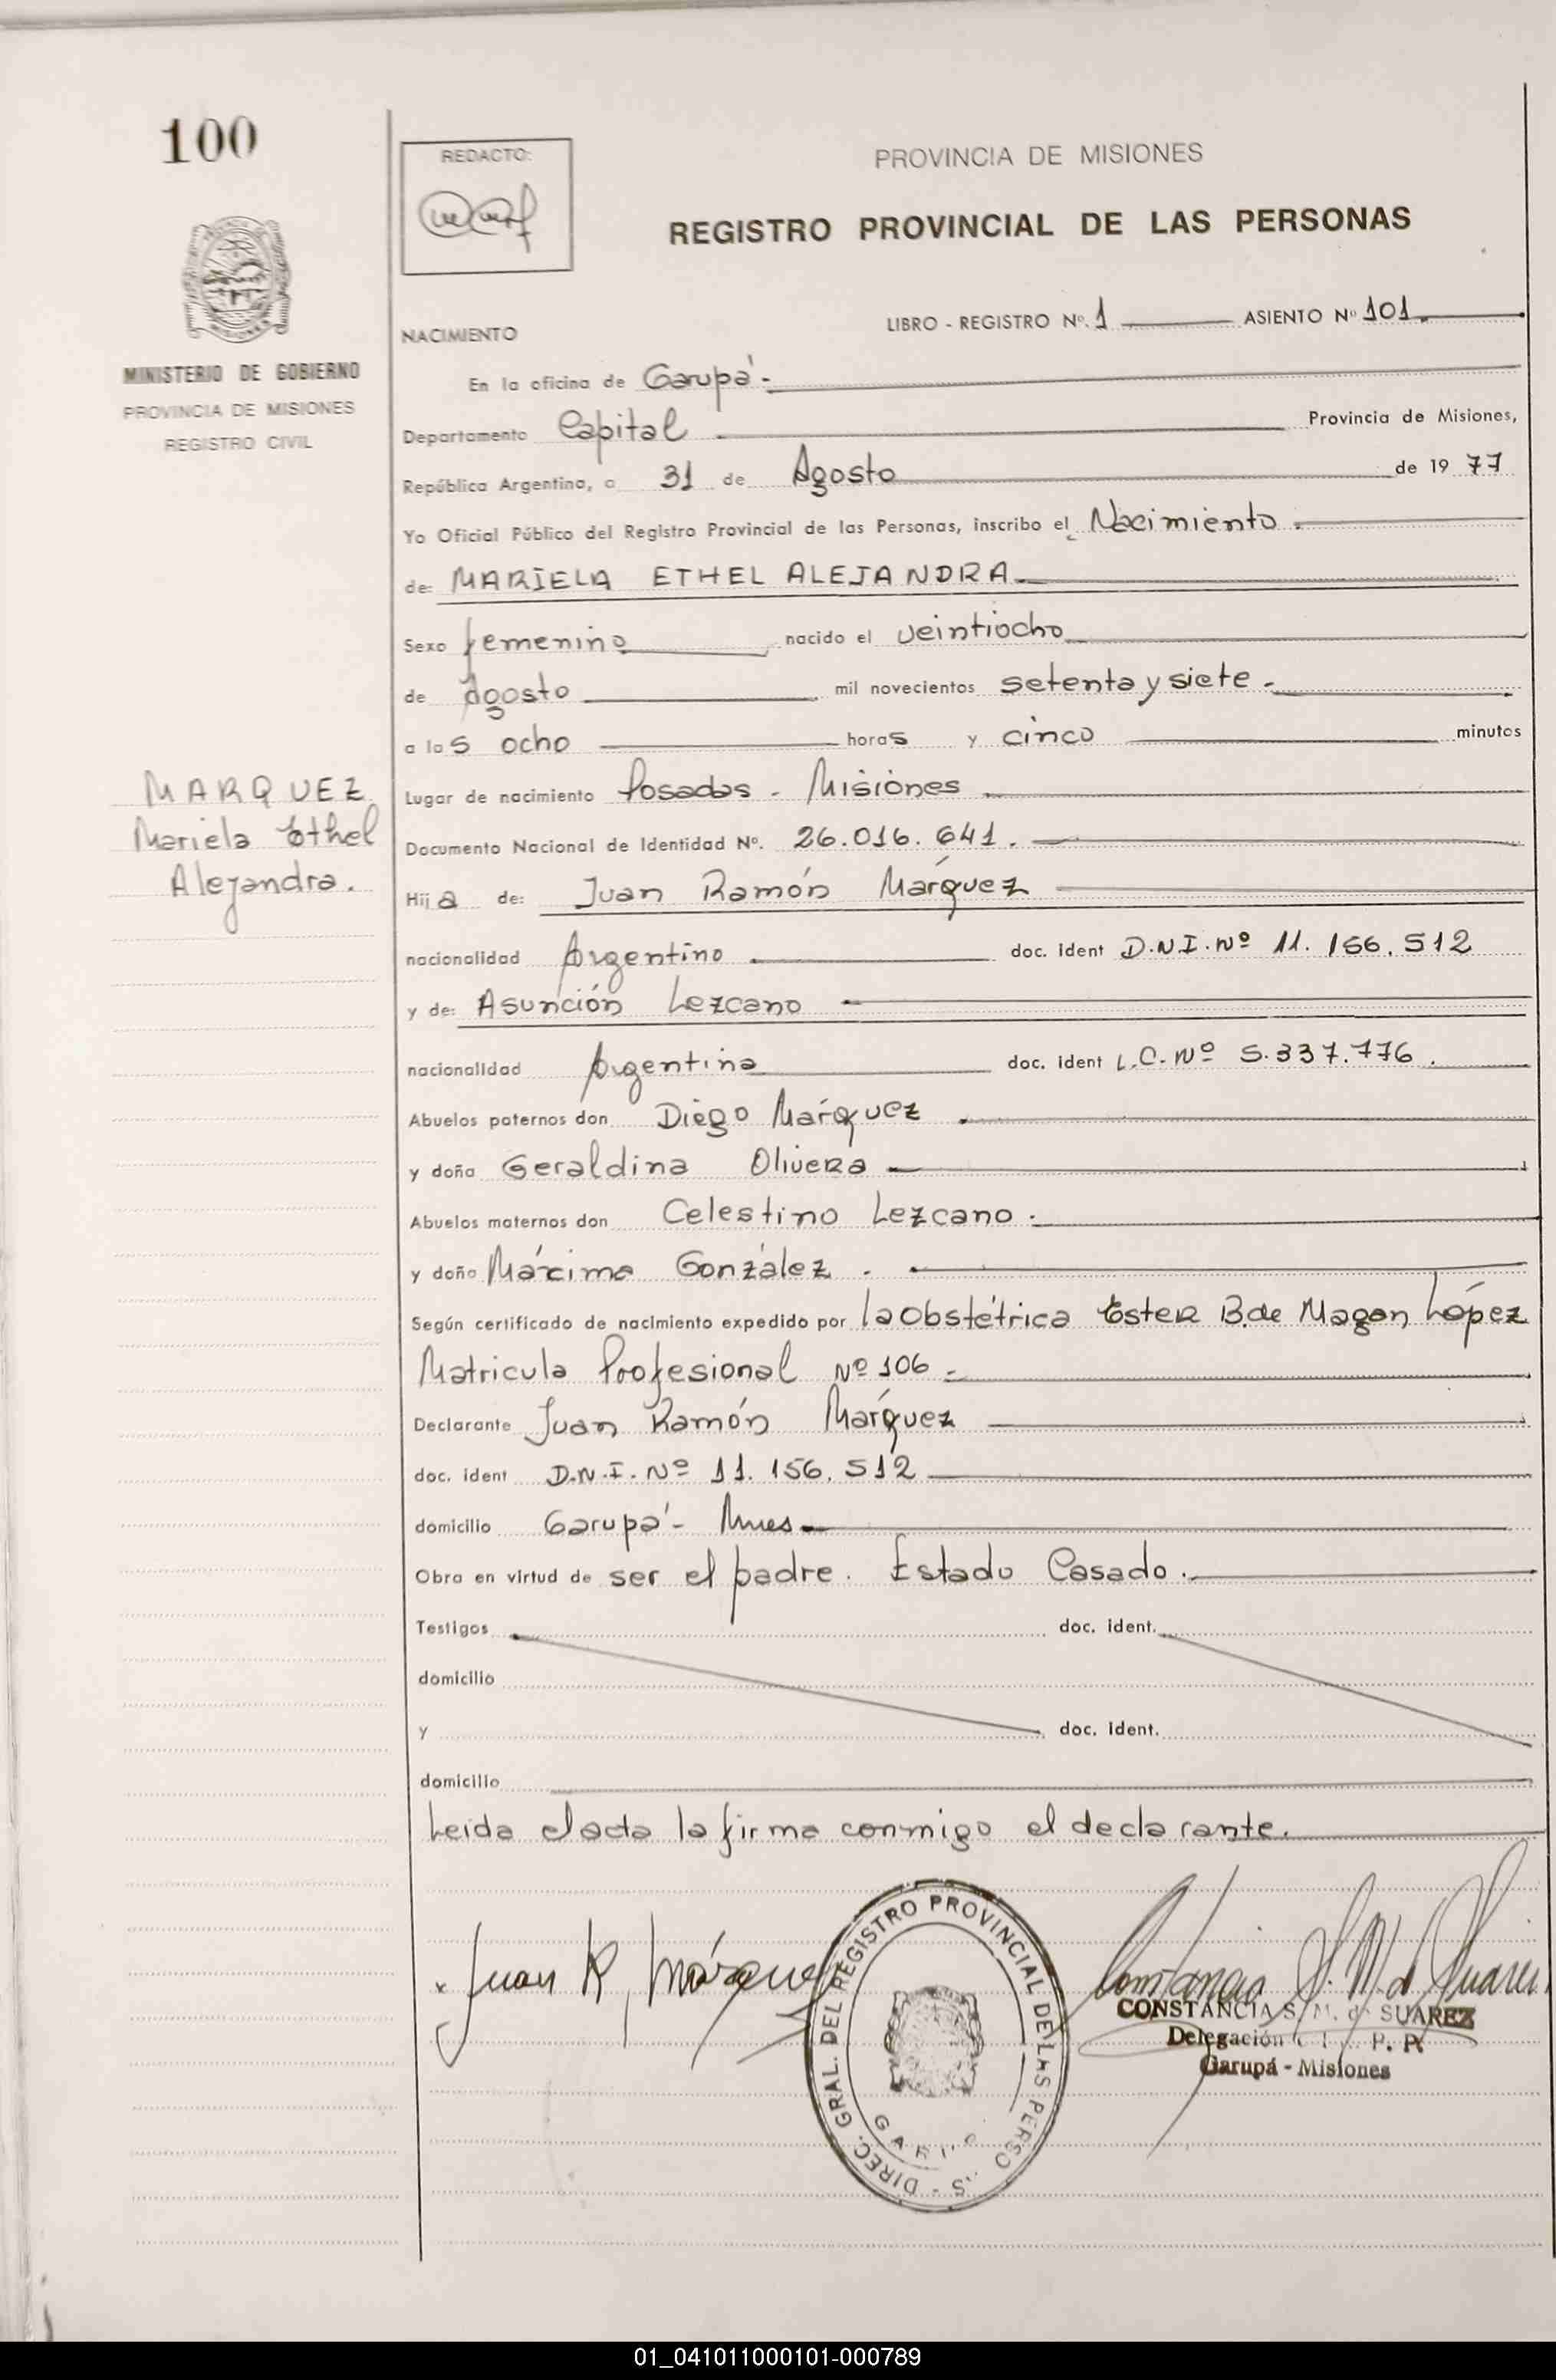 100
REDACTO:
PROVINCIA DE MISIONES
REGISTRO PROVINCIAL DE LAS PERSONAS
MINISTERIO DE GOBIERNO
PROVINCIA DE MISIONES
REGISTRO CIVIL
NACIMIENTO
LIBRO - REGISTRO Nº. 1 ASIENTO Nº 101.
En la oficina de Garupá.-
Departamento Capital Provincia de Misiones,
República Argentina, a 31 de Agosto de 1977
Yo Oficial Público del Registro Provincial de las Personas, inscribo el Nacimiento.
de: MARIELA ETHEL ALEJANDRA
Sexo femenino nacido el veintiocho
de Agosto mil novecientos setenta y siete.-
a las ocho horas y cinco minutos
MARQUEZ
Mariela Ethel
Alejandra.
Lugar de nacimiento Posadas - Misiones
Documento Nacional de Identidad Nº. 26.016.641.
Hija de: Juan Ramón Márquez
nacionalidad Argentino doc. ident D.N.I. Nº 11.156.512
y de: Asunción Lezcano
nacionalidad Argentina doc. ident L.C. Nº 5.337.776.
Abuelos paternos don Diego Márquez
y doña Geraldina Olivera
Abuelos maternos don Celestino Lezcano.
y doña Máxima González.
Según certificado de nacimiento expedido por la Obstétrica Ester B. de Magan López
Matricula Profesional Nº 106
Declarante Juan Ramón Márquez
doc. ident D.N.I. Nº 11.156.512
domicilio Garupá - Mnes
Obra en virtud de ser el padre. Estado Casado.
Testigos doc. ident.
domicilio
y doc. ident.
domicilio
Leida el acta la firma conmigo el declarante.
Juan R. Márquez
DIREC. GRAL. DEL REGISTRO PROVINCIAL DE LAS PERSO S -
Constancia S. M. d Suarez
CONSTANCIA S. M. de SUAREZ
Delegación
Garupá - Misiones
01_041011000101-000789